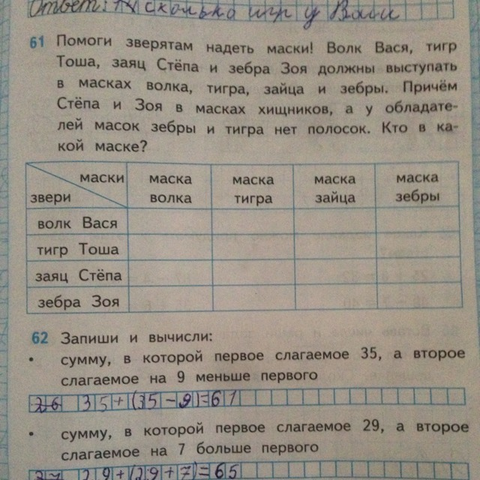 Ответ: сколько игр у Вали
61 Помоги зверятам надеть маски! Волк Вася, тигр
Тоша, заяц Стёпа и зебра Зоя должны выступать
в масках волка, тигра, зайца и зебры. Причём
Стёпа и Зоя в масках хищников, а у обладате-
лей масок зебры и тигра нет полосок. Кто в ка-
кой маске?
маски маска маска маска маска
звери волка тигра зайца зебры
волк Вася
тигр Тоша
заяц Стёпа
зебра Зоя
62 Запиши и вычисли:
• сумму, в которой первое слагаемое 35, а второе
слагаемое на 9 меньше первого
35+(35-9)=61
• сумму, в которой первое слагаемое 29, а второе
слагаемое на 7 больше первого
29+(29+7)=65